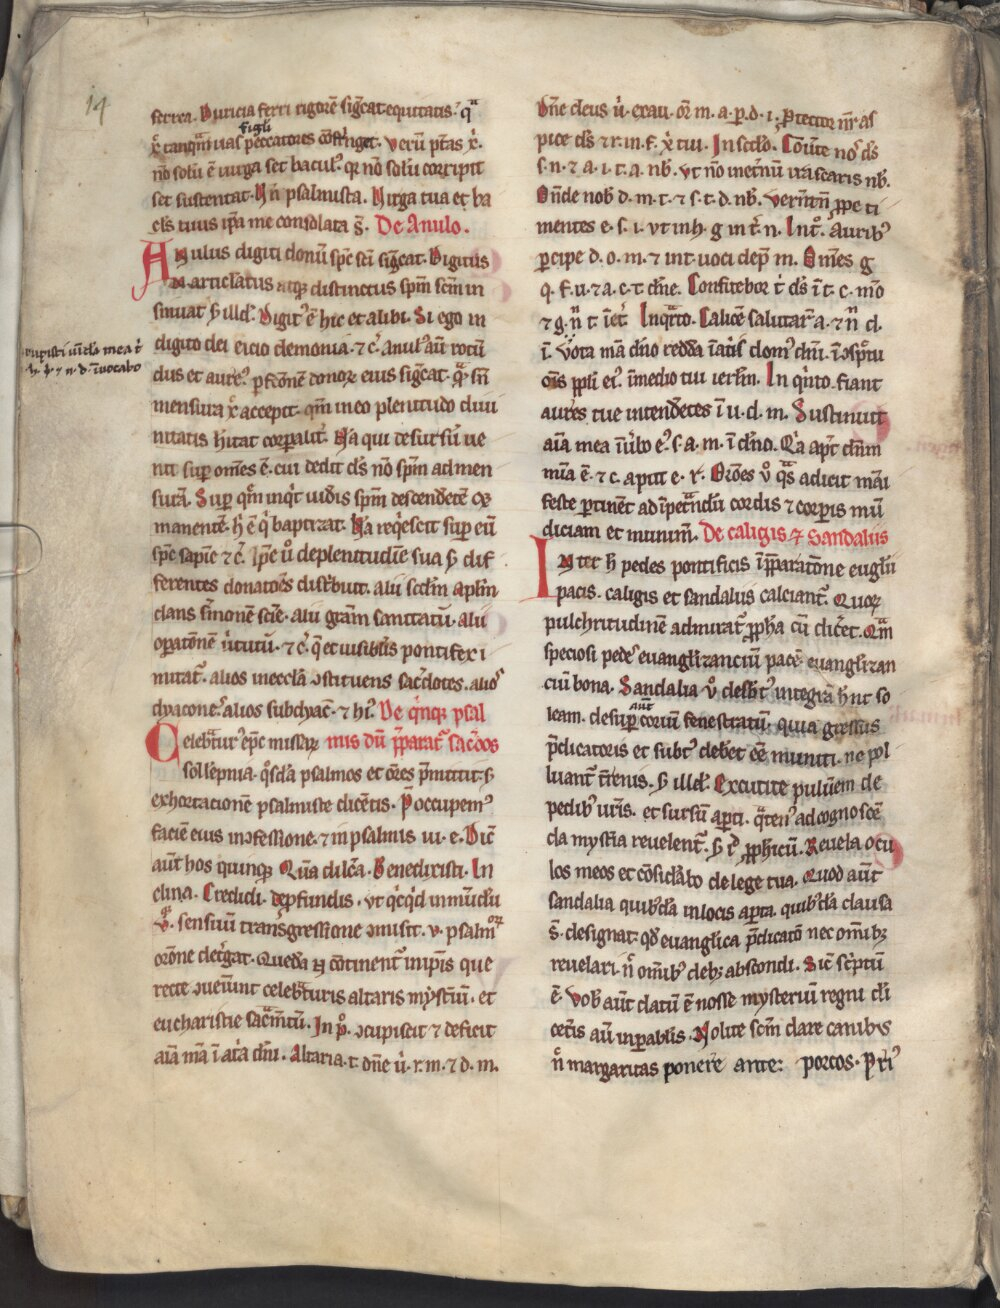 14
ferrea. Duricia ferri rigorē siḡcat equitatis. qͣ
figl'i
x̄ tanqͣm uas peccatores cōfr̄nget. Verū ptās x̄.
nō solū ē uirga set baculꝰ. qr nō solū corripit
set sustentat. Vn̄ psalmista. Virga tua et ba
cl's tuus ip̄a me consolata s̄. De Anulo.
Anulus digiti donū sp̄c sc̄i siḡcat. Digitus
articl'atus atqꝫ distinctus sp̄m sc̄m in
sinuat ẜ illd'. Digitꝰ ē hic et alibi. Si ego in
digito dei eicio demonia. ⁊ c̄. anulꝰ aūt rotū
dus et aureꝰ. ꝑfcōnē donoꝝ eius siḡcat. qͣ sn̄
rupisti uīcl'a mea t̄
mensura x̄ accepit. qm̄ in eo plenitudo diui
nitatis h̄itat corꝑalit̄. Na qui desursū ue
nit suꝑ omēs ē. cui dedit ds̄ nō sp̄m ad men
surā. Suꝑ qm̄ inqͥt uid'is sp̄m descendētē ⁊
manentē. h̄ ē qͥ baptizat. Na req̄escit suꝑ eū
sp̄c sapiē ⁊ c̄. Ip̄e u̇ de plenitudīe sua ẜ dif
ferentes donatōēs distͥbuit. alii scd'm apl'm
dans s̄monē sciē. alii gr̄am sanitatū. alii
oꝑatōnē ūtutū. ⁊ c̄. q̄ et uisibl'is pontifex i
mitat̄. alios in eccl'a ↄstituens sac̄dotes. alioˢ
dyaconeˢ. alios subdyac̄. ⁊ hiꝰ. De qͥnqꝫ psal
Celebr̄turꝰ ep̄c missaꝝ mis dū p̄parat̄ sac̄dos
sollēpnia. qͦsd'a psalmos et or̄ēs p̄mittit. ẜ
exhortacionē psalmiste dicētis. P̄occupemꝰ
faciē eius in ↄfessione. ⁊ in psalmis iu. e. Dic̄
aūt hos quinqꝫ Qͣm dilc̄a. Benedixisti. In
clina. Credidi. De ꝓfundis. vt qͥcqͥd inmūdū
.v. sensiuū transgressione ↄmisit. v. psalmoꝝ
or̄one det̄gat. Quedā ꝉ cōtinent̄ in ip̄is que
recte ↄueniūnt celebr̄turis altaris myst̄iū. et
eucharistie sac̄m̄tū. In pͦ. ↄcupiscit ⁊ deficit
aīa m̄a ī at̄a dn̄i. Altaria. t. dn̄e ū. r. m. ⁊ d. m.
Dn̄e deus ū. exau. or̄ m. a. p. d. i. Ptector nr̄ as
pice ds̄ ⁊ r. in. f. x̄ tui. In sec̄do. Cōūte noˢ ds̄
s. n. ⁊ a. i. t. a. nb̄. vt nō inet̄nū irascaris nb̄.
Ōnde nob̄ d. m. t. ⁊ s. t. d. nb̄. verūtn̄ ꝓpe ti
mentes e. s. i. vt inh. g in t̄. n. Int̄ꝰ. Auribꝰ
ꝑcipe d. o. m. ⁊ int. uoci dep̄ m. Omēs g
q. f. u. ⁊ a. c. t dn̄e. Confitebor t̄ ds̄ ī t. c. m̄o
⁊ g. n̄ t. īet̄. In qͣrto. Calicē salutar̄ a. ⁊ n̄ d.
ī. Vota m̄a dn̄o reddā ī atīs domꝰ dn̄i. ī ↄspc̄tu
oīs ppl'i eiꝰ. ī medio tui ierl'm. In qͥnto. fiant
aures tue intendētes ī u. d. m. Sustinuit
aīa mea ī ūbo eꝰ. s. a. m. ī dn̄o. Qͥa apꝰ dn̄m
m̄ia ē. ⁊ c. aput e. r̄. Or̄oēs u̇ qͣs adicit maī
feste ꝑtinēt ad ip̄et̄ndū cordis ⁊ corꝑis mū
diciam et munim̄. De caligis ⁊ Sandaliis
Inter h̄ pedes pontificis ī p̄paratōne eugl'ii
pacis. caligis et sandaliis calciant̄. Quoꝝ
pulchritudinē admirat̄ ꝓph̄a cū dic̄et. Qͣm
speciosi pedeˢ euangl'izanciū pacē euangl'izan
ciū bona. Sandalia u̇ desubtꝰ integrā h̄nt so
leam. desuꝑ aūt corūi fenestratū. quia gressus
p̄dicatoris et subtꝰ debēt eē muniti. ne pol
luant̄ t̄renis. ẜ illd'. Excutite puluēm de
pedibꝰ ur̄is. et sursū aꝑti. qͣtenꝰ ad cognoscē
da myst̄ia reuelent̄. ẜ iͭ ꝓph̄icū. Reuela ocu
los meos et cōsidͣbo de lege tua. Quod aūt
sandalia quibꝰd'a in locis aꝑta. quibꝰd'a clausa
s̄. designat. qd' euangl'ica p̄dicatō nec omībꝫ
reuelari. n̄ omībꝰ debꝫ abscondi. Sic̄ sc̄ptū
ē. Vob̄ aūt datū ē nosse mysteriū regni di
cet̄is aū in ꝑablis. Nolite sc̄m dare canibꝰ
n̄ margaritas ponere ante: porcos. Priꝰ